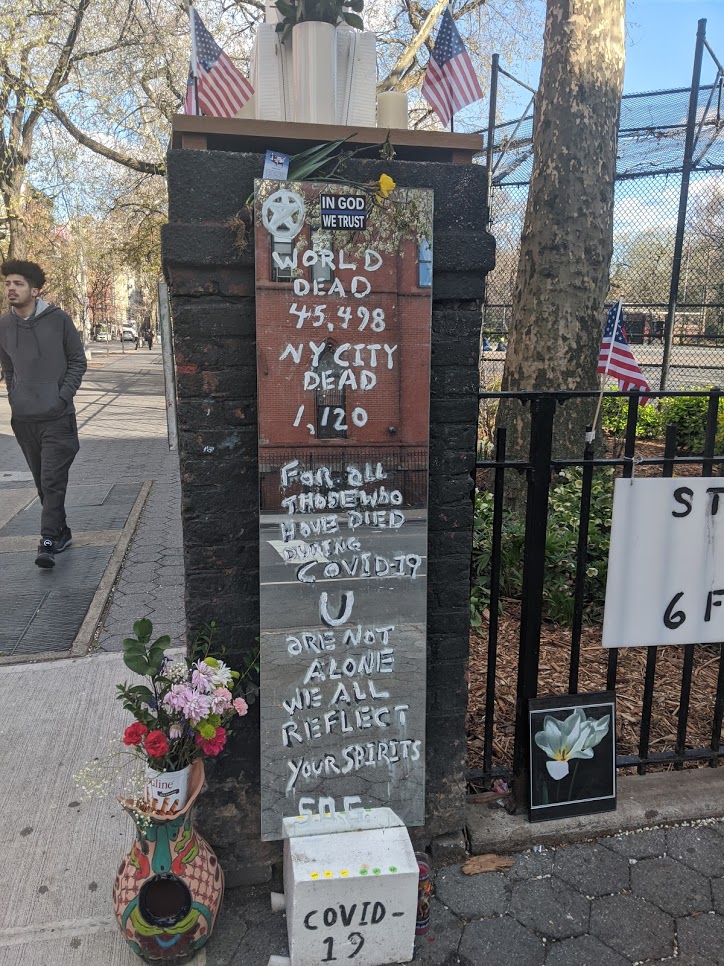 IN GOD
WE TRUST
WORLD
DEAD
45,498
NY CITY
DEAD
1,120
FOR ALL
THOSE WHO
HAVE DIED
DURING
COVID-19
U
ARE NOT
ALONE
WE ALL
REFLECT
YOUR SPIRITS
ST
6 F
COVID-
19